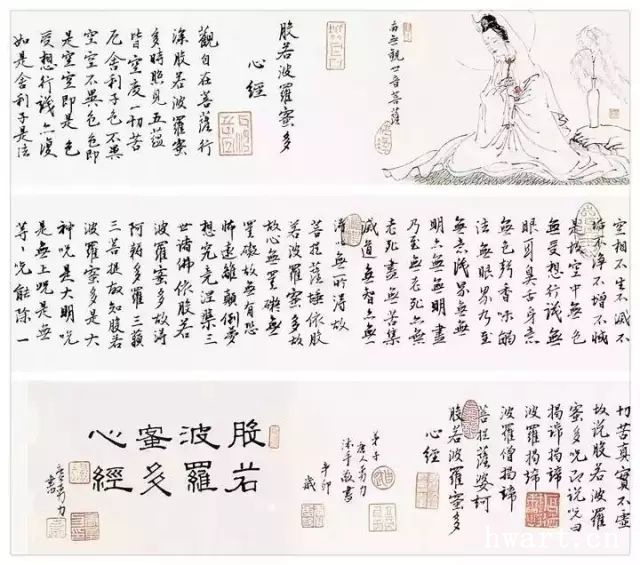 南無觀世音菩薩
般若波羅蜜多
心經
觀自在菩薩行
深般若波羅蜜
多時照見五蘊
皆空度一切苦
厄舍利子色不異
空空不異色色即
是空空即是色
受想行識亦復
如是舍利子是法
空相不生不滅不
垢不淨不增不減
是故空中無色
無受想行識無
眼耳鼻舌身意
無色聲香味觸
法無眼界乃至
無意識界無無
明亦無無明盡
乃至無老死亦無
老死盡無苦集
滅道無智亦無
得以無所得故
菩提薩埵依般
若波羅蜜多故
故心無罣礙無
罣礙故無有恐
怖遠離顛倒夢
想究竟涅槃三
世諸佛依般若
波羅蜜多故得
阿耨多羅三藐
三菩提故知般若
波羅蜜多是大
神咒是大明咒
是無上咒是無
等咒能除一
切苦真實不虛
故說般若波羅
蜜多咒即說咒曰
揭諦揭諦
波羅揭諦
波羅僧揭諦
菩提薩婆訶
般若波羅蜜多
心經
弟子
沐手敬書
般若
波羅
蜜多
心經
hwart.cn